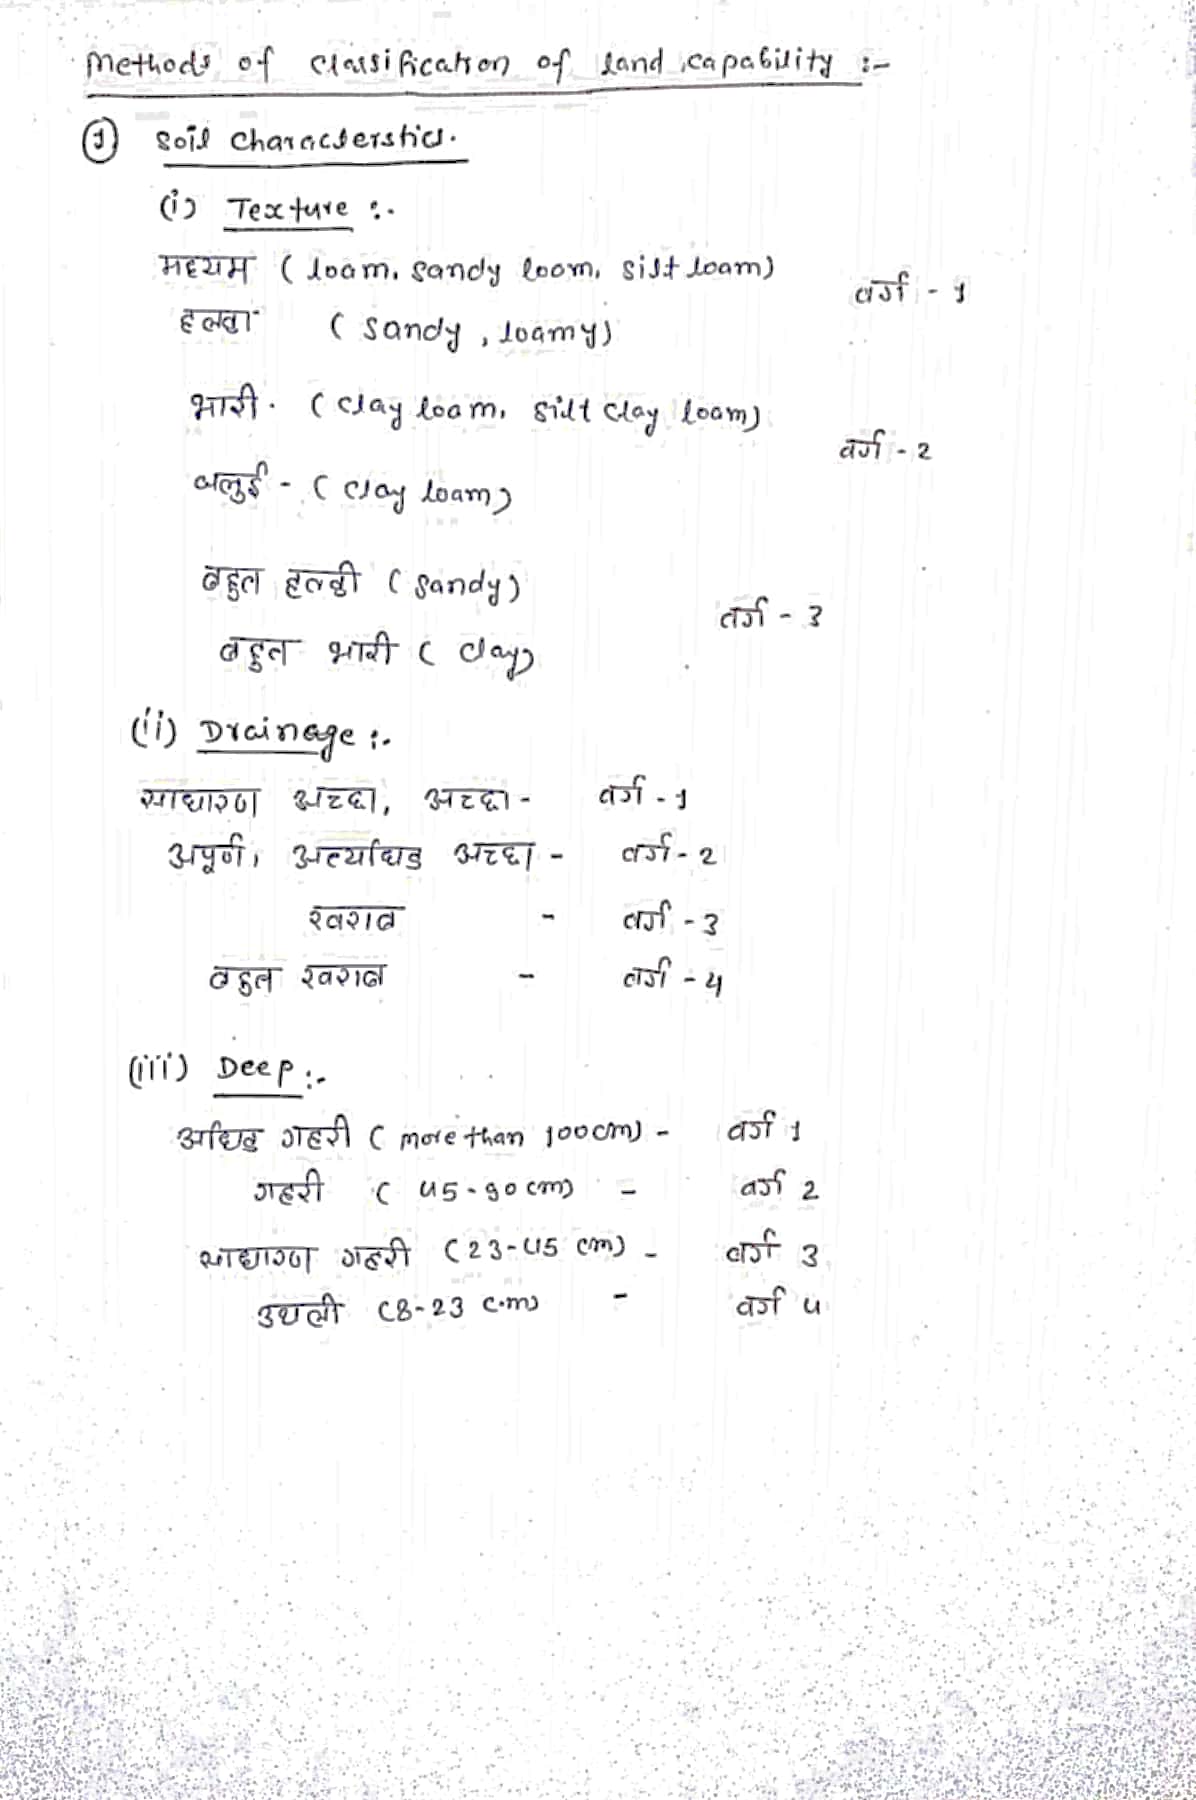 Methods of classification of land capability :-
① Soil characterstics.
(i) Texture :-
मध्यम ( loam, sandy loom, silt loam)
वर्ग - 1
हल्का ( sandy, loamy)
भारी - ( clay loam, silt clay loam)
वर्ग - 2
बलुई - ( clay loam)
बहुत हल्की ( sandy)
वर्ग - 3
बहुत भारी ( clay)
(ii) Drainage :-
साधारण अच्छा, अच्छा - वर्ग - 1
अपूर्ण, अत्याधिक अच्छा - वर्ग - 2
खराब - वर्ग - 3
बहुत खराब - वर्ग - 4
(iii) Deep :-
अधिक गहरी ( more than 100cm) - वर्ग 1
गहरी ( 45-90 cm) - वर्ग 2
साधारण गहरी (23-45 cm) - वर्ग 3
उथली (8-23 c.m) - वर्ग 4